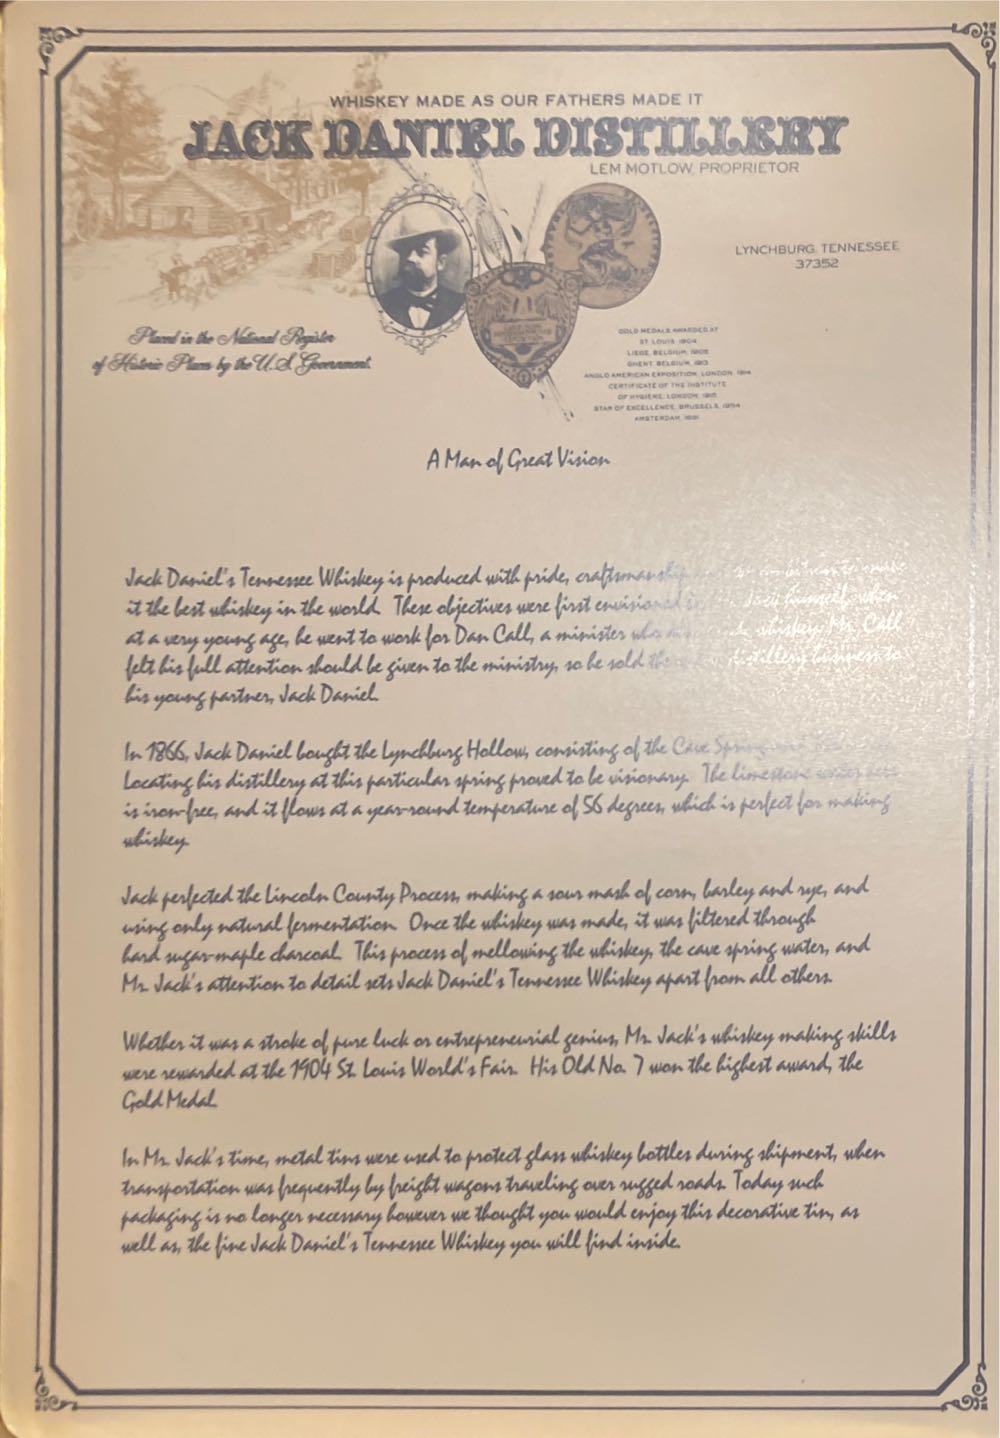 WHISKEY MADE AS OUR FATHERS MADE IT
JACK DANIEL DISTILLERY
LEM MOTLOW, PROPRIETOR
LYNCHBURG, TENNESSEE
37352
Placed in the National Register
of Historic Places by the U.S. Government.
GOLD MEDALS AWARDED AT
ST. LOUIS, 1904
LIEGE, BELGIUM, 1905
GHENT, BELGIUM, 1913
ANGLO AMERICAN EXPOSITION, LONDON, 1914
CERTIFICATE OF THE INSTITUTE
OF HYGIENE, LONDON, 1915
STAR OF EXCELLENCE, BRUSSELS, 1954
AMSTERDAM, 1981
A Man of Great Vision
Jack Daniel's Tennessee Whiskey is produced with pride, craftsmanship
it the best whiskey in the world. These objectives were first envisioned Jack himself, when
at a very young age, he went to work for Dan Call, a minister who whiskey. Mr. Call
felt his full attention should be given to the ministry, so he sold the distillery business to
his young partner, Jack Daniel.
In 1866, Jack Daniel bought the Lynchburg Hollow, consisting of the Cave Spring
Locating his distillery at this particular spring proved to be visionary. The limestone water here
is iron-free, and it flows at a year-round temperature of 56 degrees, which is perfect for making
whiskey.
Jack perfected the Lincoln County Process, making a sour mash of corn, barley and rye, and
using only natural fermentation. Once the whiskey was made, it was filtered through
hard sugar-maple charcoal. This process of mellowing the whiskey, the cave spring water, and
Mr. Jack's attention to detail sets Jack Daniel's Tennessee Whiskey apart from all others.
Whether it was a stroke of pure luck or entrepreneurial genius, Mr. Jack's whiskey making skills
were rewarded at the 1904 St. Louis World's Fair. His Old No. 7 won the highest award, the
Gold Medal.
In Mr. Jack's time, metal tins were used to protect glass whiskey bottles during shipment, when
transportation was frequently by freight wagons traveling over rugged roads. Today such
packaging is no longer necessary however we thought you would enjoy this decorative tin, as
well as, the fine Jack Daniel's Tennessee Whiskey you will find inside.